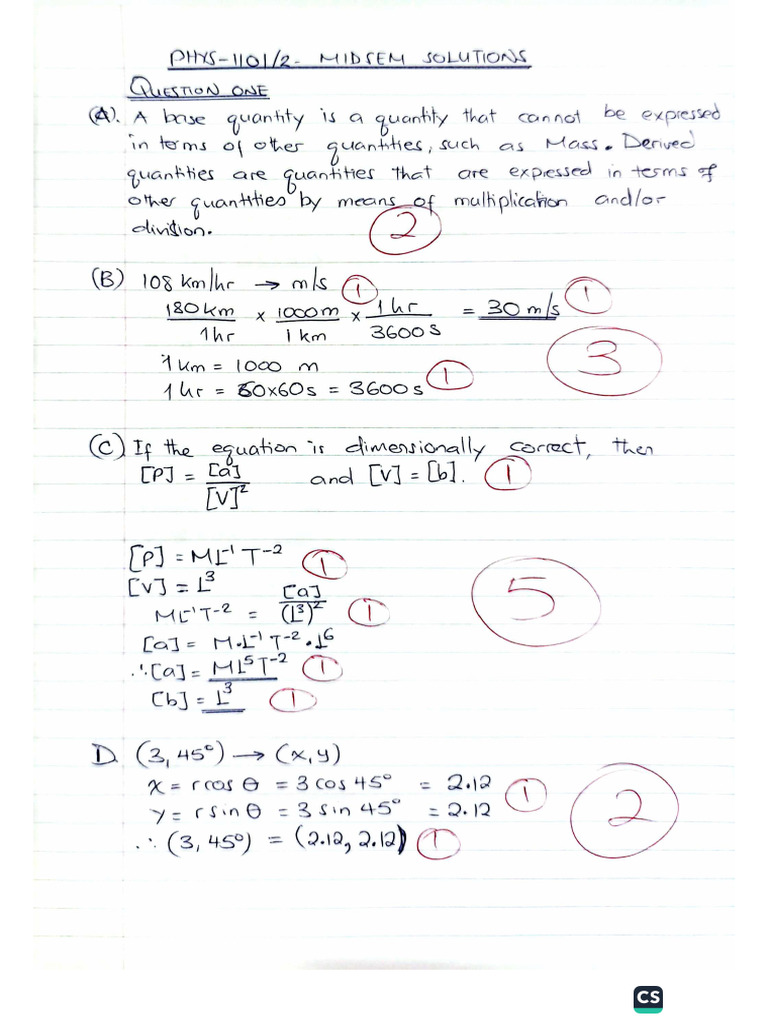 PHYS-1101/2- MIDSEM SOLUTIONS
QUESTION ONE
(A). A base quantity is a quantity that cannot be expressed
in terms of other quantities, such as Mass. Derived
quantities are quantities that are expressed in terms of
other quantities by means of multiplication and/or
division.
2
(B) 108 km/hr → m/s 1
180km/1hr × 1000m/1km × 1hr/3600s = 30 m/s 1
3
1km = 1000 m
1hr = 60×60s = 3600s 1
(C) If the equation is dimensionally correct, then
[P] = [a]/[V]² and [V] = [b]. 1
[P] = ML⁻¹T⁻² 1
[V] = L³
ML⁻¹T⁻² = [a]/(L³)² 1
5
[a] = M·L⁻¹T⁻²·L⁶
∴[a] = ML⁵T⁻² 1
[b] = L³ 1
D. (3, 45°) → (x, y)
x = rcos θ = 3 cos 45° = 2.12 1
y = rsin θ = 3 sin 45° = 2.12
2
∴ (3, 45°) = (2.12, 2.12) 1
CS